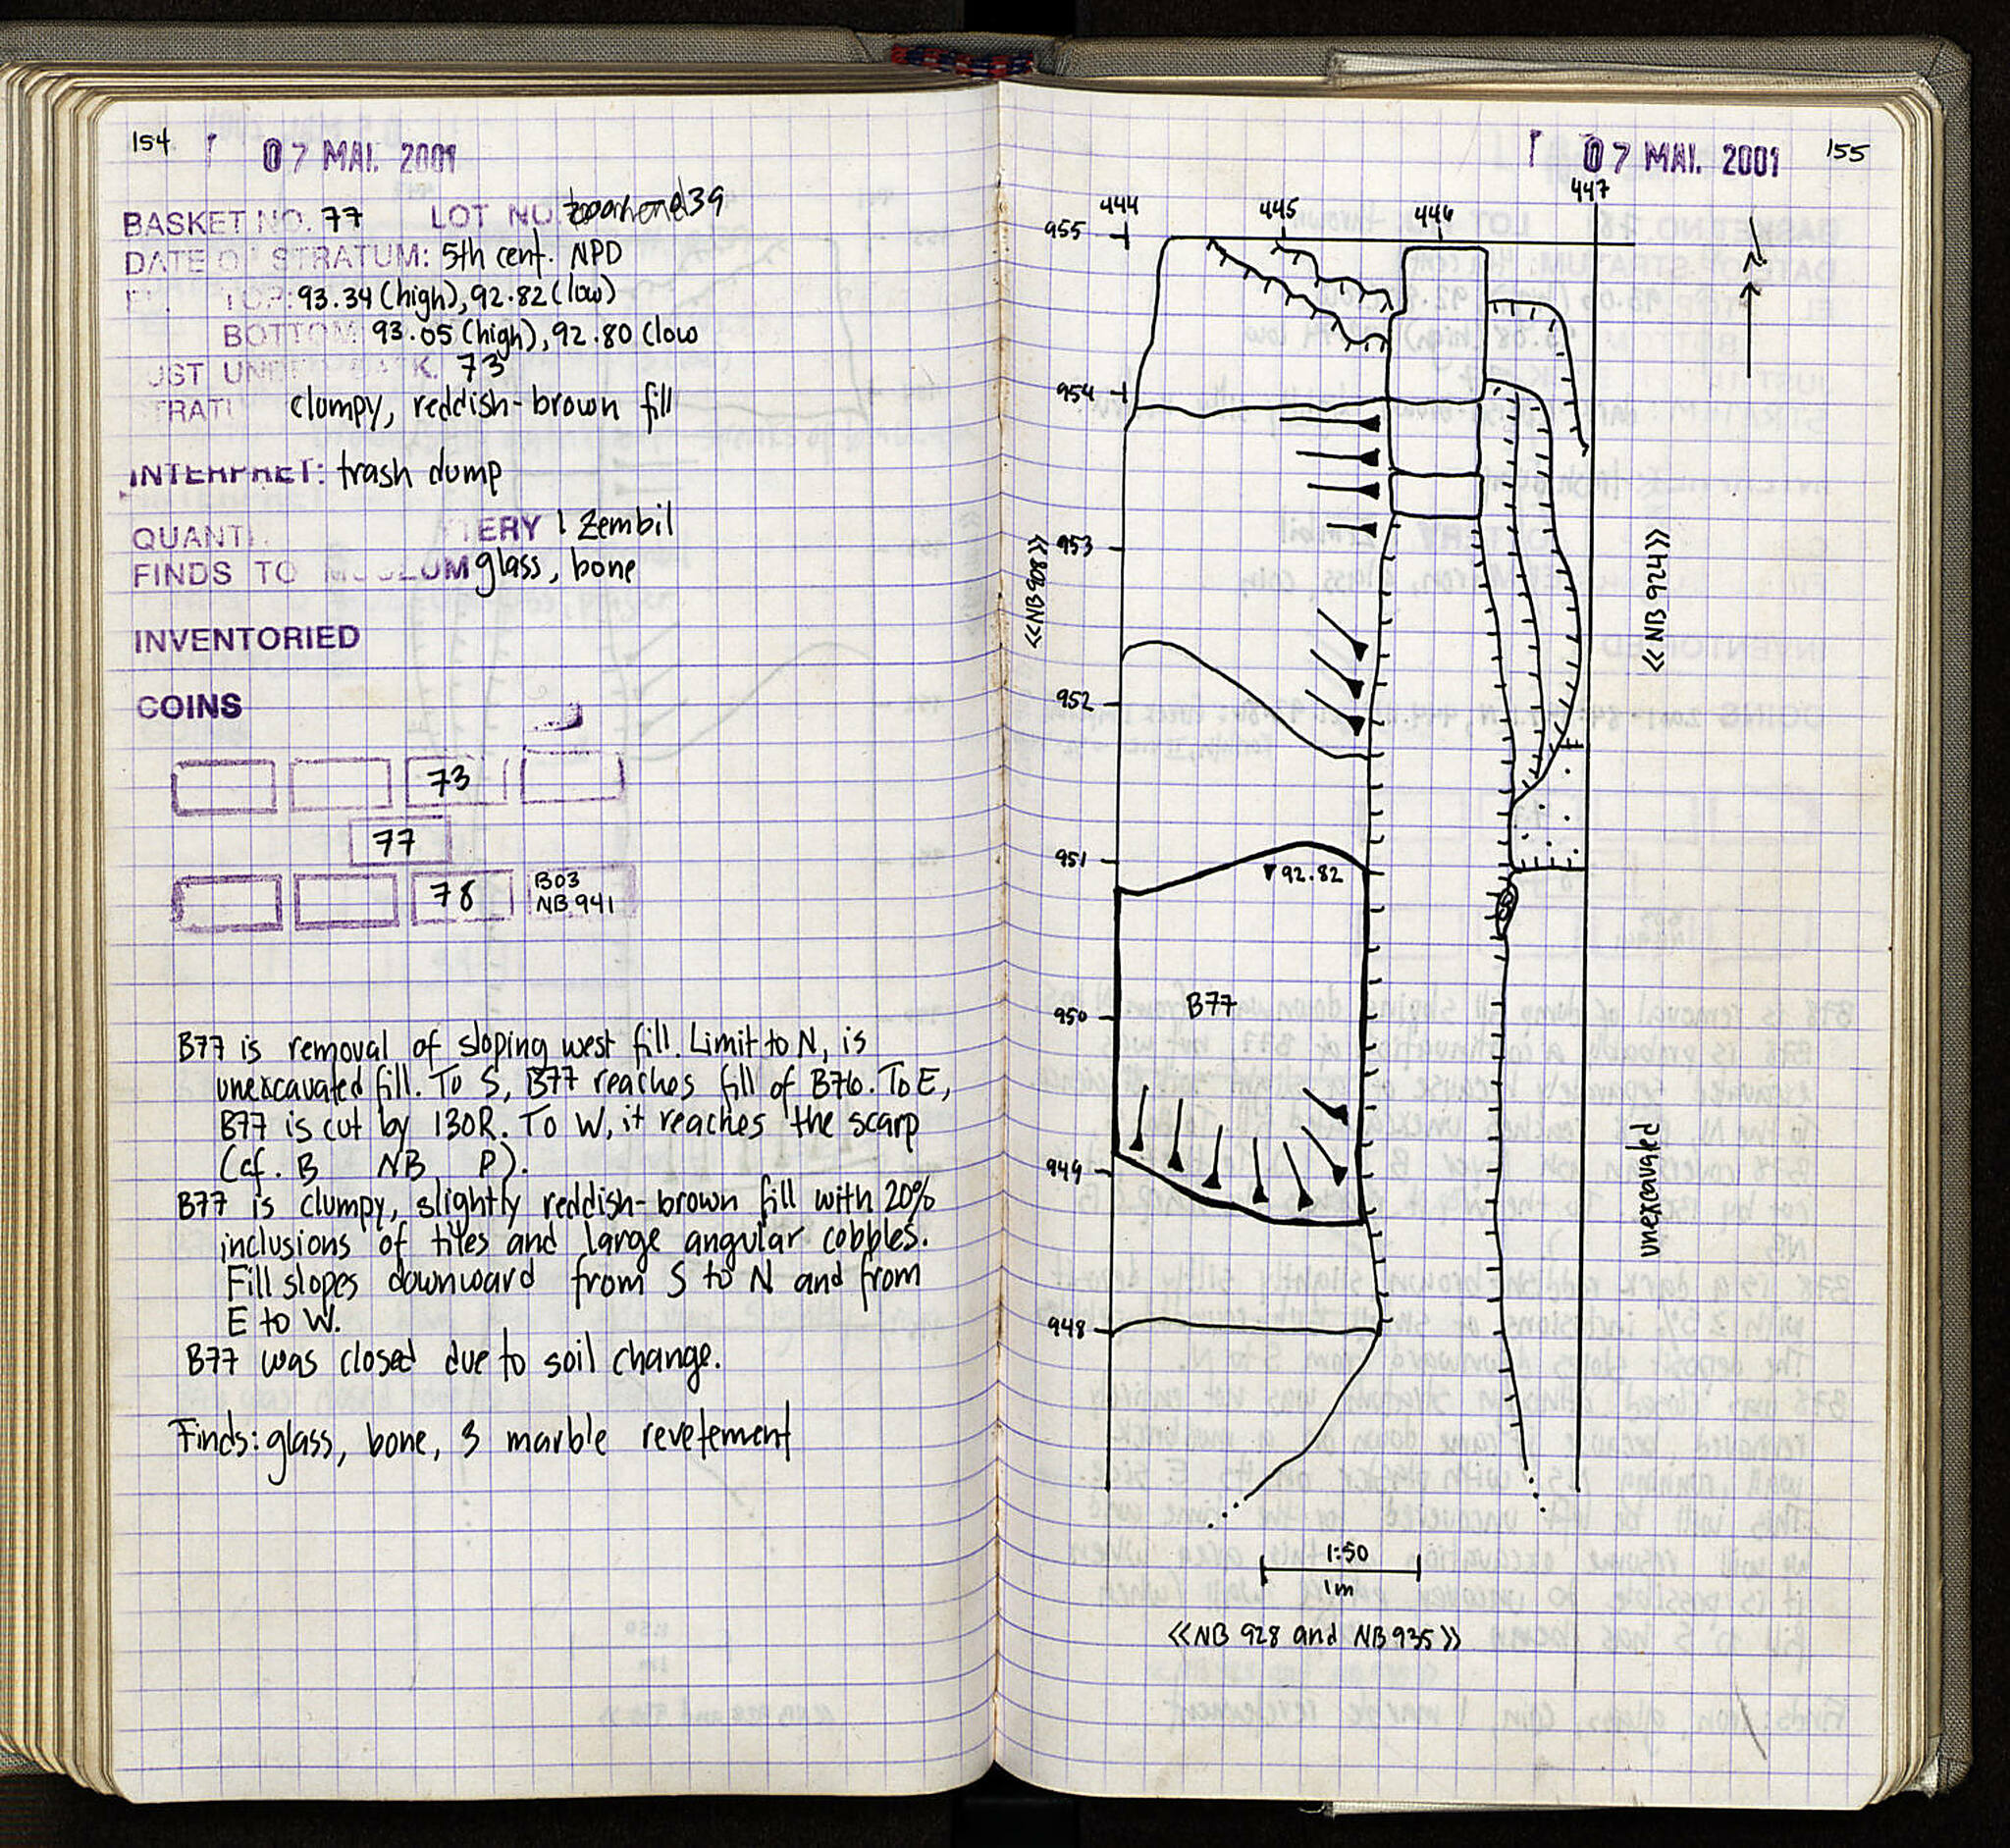 154
07 MAI. 2001
BASKET NO. 77 LOT NO. 39
DATE OF STRATUM: 5th cent. NPD
TOP: 93.34 (high), 92.82 (low)
BOTTOM 93.05 (high), 92.80 (low
UST UN K. 73
TRATI clompy, reddish-brown fill
INTERPRET: trash dump
QUANTI TERY 1 Zembil
FINDS TO MUSEUM glass, bone
INVENTORIED
COINS
73
77
78 B03
NB 941
B77 is removal of sloping west fill. Limit to N, is
unexcavated fill. To S, B77 reaches fill of B76. To E,
B77 is cut by 130R. To W, it reaches the scarp
(cf. B NB P).
B77 is clumpy, slightly reddish-brown fill with 20%
inclusions of tiles and large angular cobbles.
Fill slopes downward from S to N and from
E to W.
B77 was closed due to soil change.
Finds: glass, bone, 3 marble revetement
07 MAI. 2001
155
444 445 446 447
955
954
953
952
951
950
949
948
«NB 908»
«NB 924»
92.82
B77
unexcavated
1:50
1m
«NB 928 and NB 935»